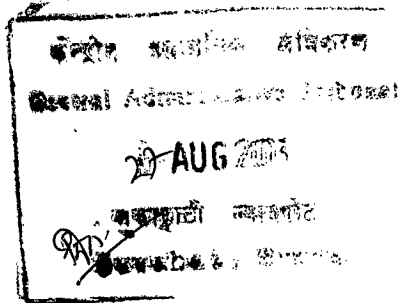 केन्द्रीय प्रशासनिक अधिकरण
Central Administrative Tribunal
AUG
गुवाहाटी न्यायपीठ
Guwahati Bench